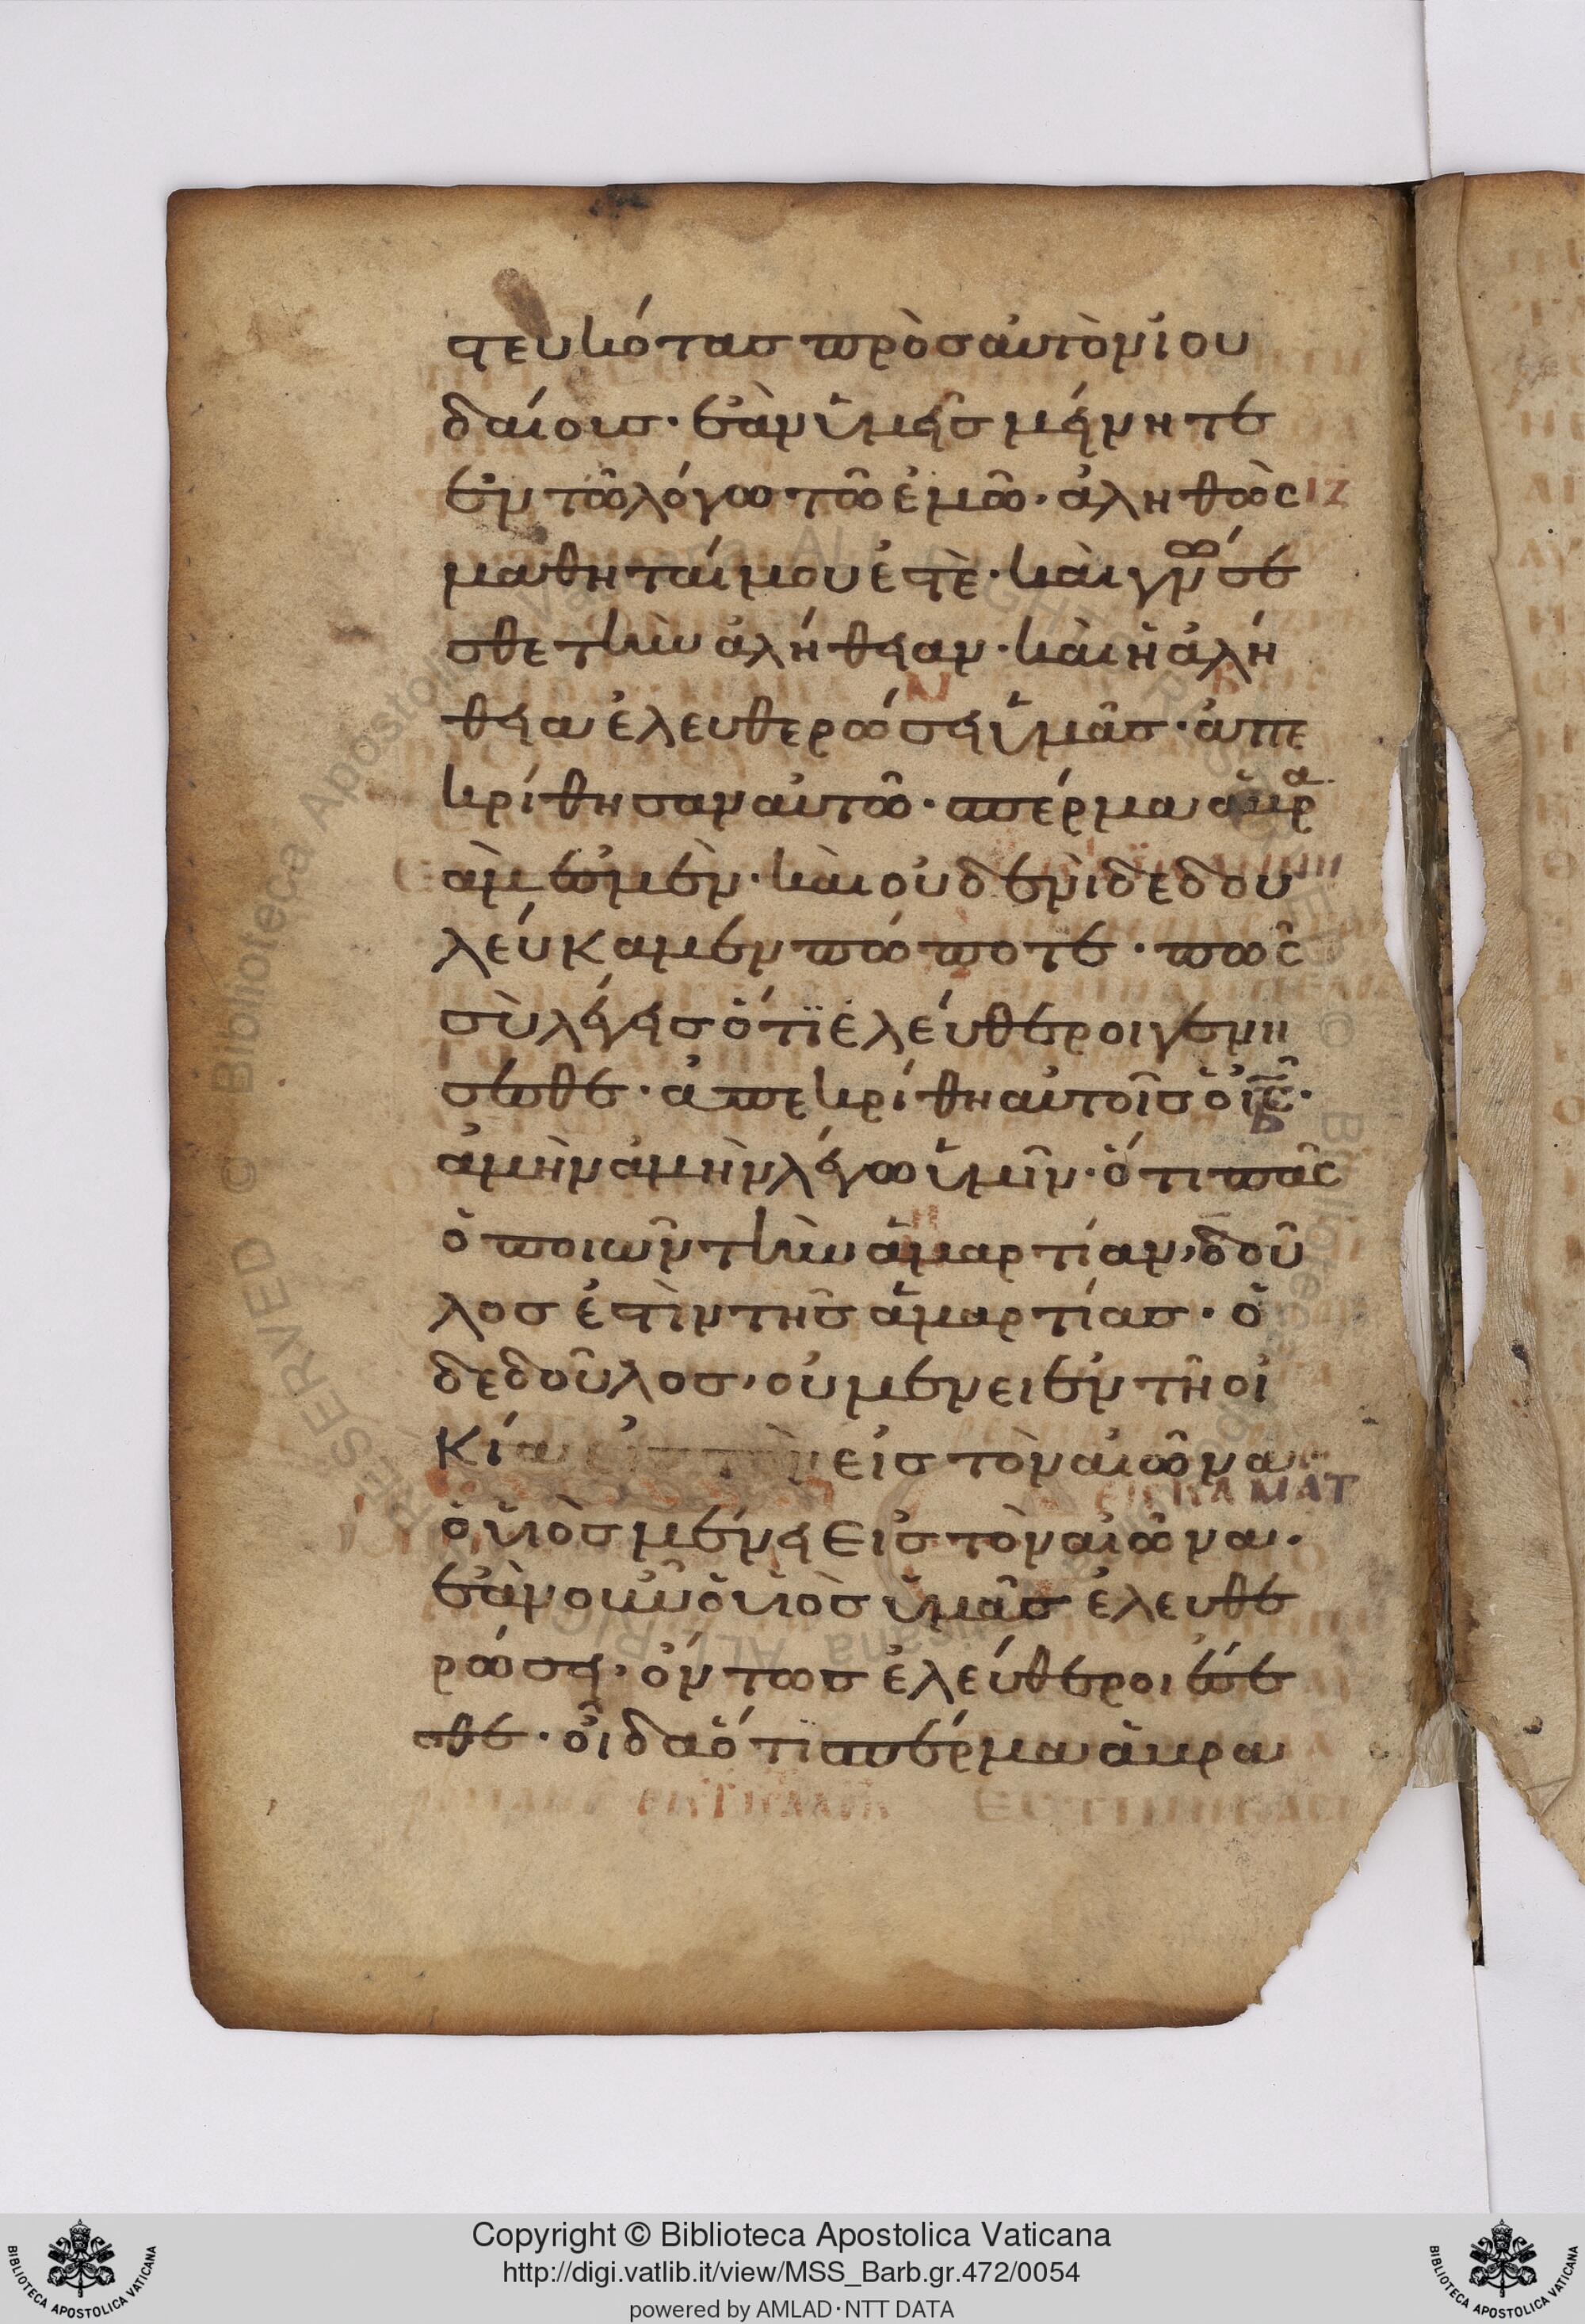 στευκότας πρὸς αὐτὸν ἰου
δαίους· ἐὰν ὑμεῖς μείνητε
ἐν τῶ λόγω τῶ ἐμῶ· ἀληθῶς
μαθηταί μου ἐστὲ· καὶ γνώσε
σθε τὴν ἀλήθειαν· καὶ ἡ ἀλή
θεια ἐλευθερώσει ὑμᾶς· ἀπε
κρίθησαν αὐτῶ· σπέρμα ἀβρα
άμ ἐσμεν· καὶ οὐδενὶ δεδου
λεύκαμεν πώποτε· πῶς
σὺ λέγεις ὅτι ἐλεύθεροι γενή
σεσθε· ἀπεκρίθη αὐτοῖς ὁ ις·
ἀμὴν ἀμὴν λέγω ὑμῖν· ὅτι πᾶς
ὁ ποιῶν τὴν ἁμαρτίαν, δοῦ
λος ἐστὶν τῆς ἁμαρτίας· ὁ
δε δοῦλος, οὐ μένει ἐν τῆ οἰ
κία εἰς τὸν αἰῶνα
ὁ υἱὸς μένει εἰς τὸν αἰῶνα·
ἐὰν οὖν ὁ υἱὸς ὑμᾶς ἐλευθε
ρώση, ὄντως ἐλεύθεροι ἔσε
σθε· οἶδα ὅτι σπέρμα ἀβρα
Copyright © Biblioteca Apostolica Vaticana
http://digi.vatlib.it/view/MSS_Barb.gr.472/0054
powered by AMLAD·NTT DATA
BIBLIOTECA APOSTOLICA VATICANA
BIBLIOTECA APOSTOLICA VATICANA